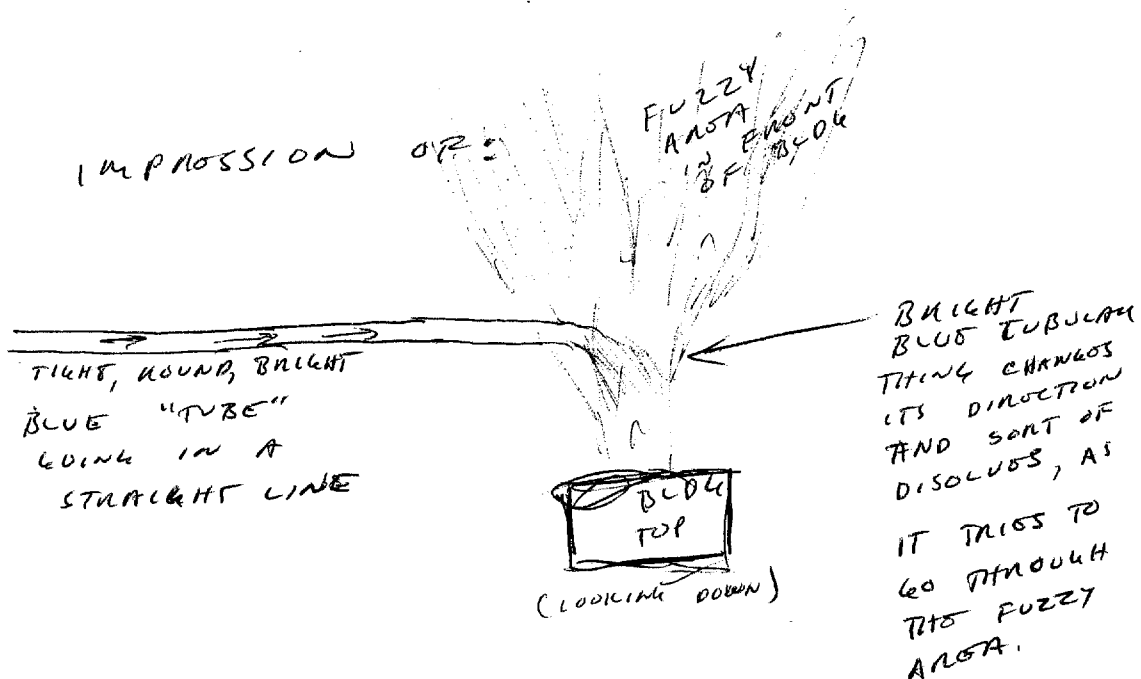 IMPRESSION OF:
FUZZY
AREA
IN FRONT
OF BLDG
TIGHT, ROUND, BRIGHT
BLUE "TUBE"
GOING IN A
STRAIGHT LINE
BRIGHT
BLUE TUBULAR
THING CHANGES
ITS DIRECTION
AND SORT OF
DISOLVES, AS
IT TRIES TO
GO THROUGH
THE FUZZY
AREA.
BLDG
TOP
(LOOKING DOWN)